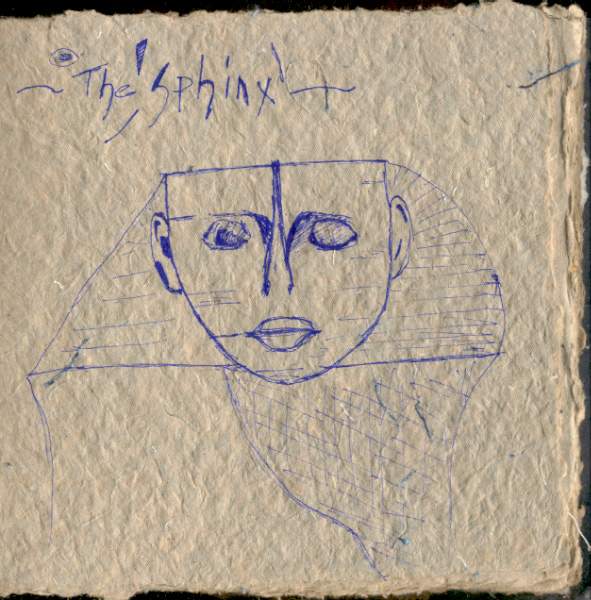 ~ The 'Sphinx' ~